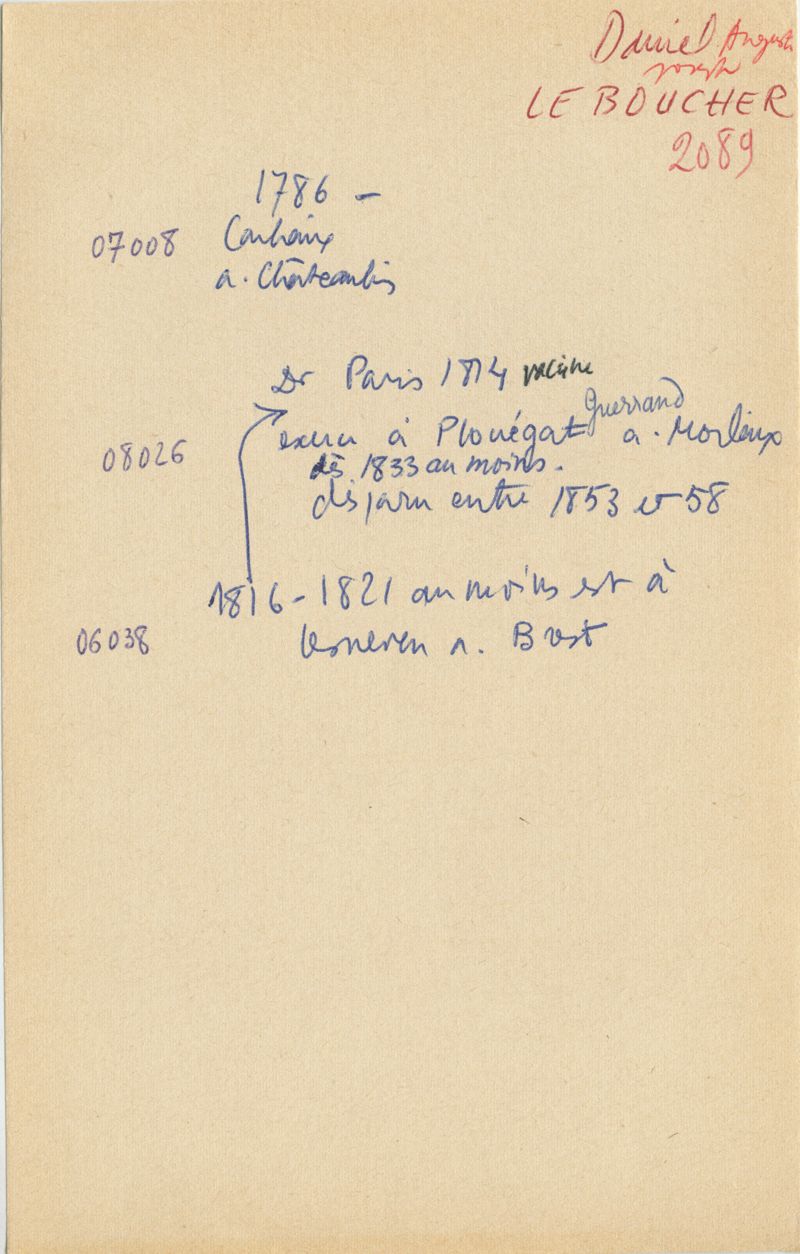 Daniel Auguste
Joseph
LE BOUCHER
2089
1786 -
07008 Carhaix
a. Châteaulin
Dr Paris 1814 vaccine
Guerrand
exerce à Plouégat a. Morlaix
08026 dès 1833 au moins.
disparu entre 1853 et 58
1816-1821 au moins est à
06038 Lesneven a. Brest